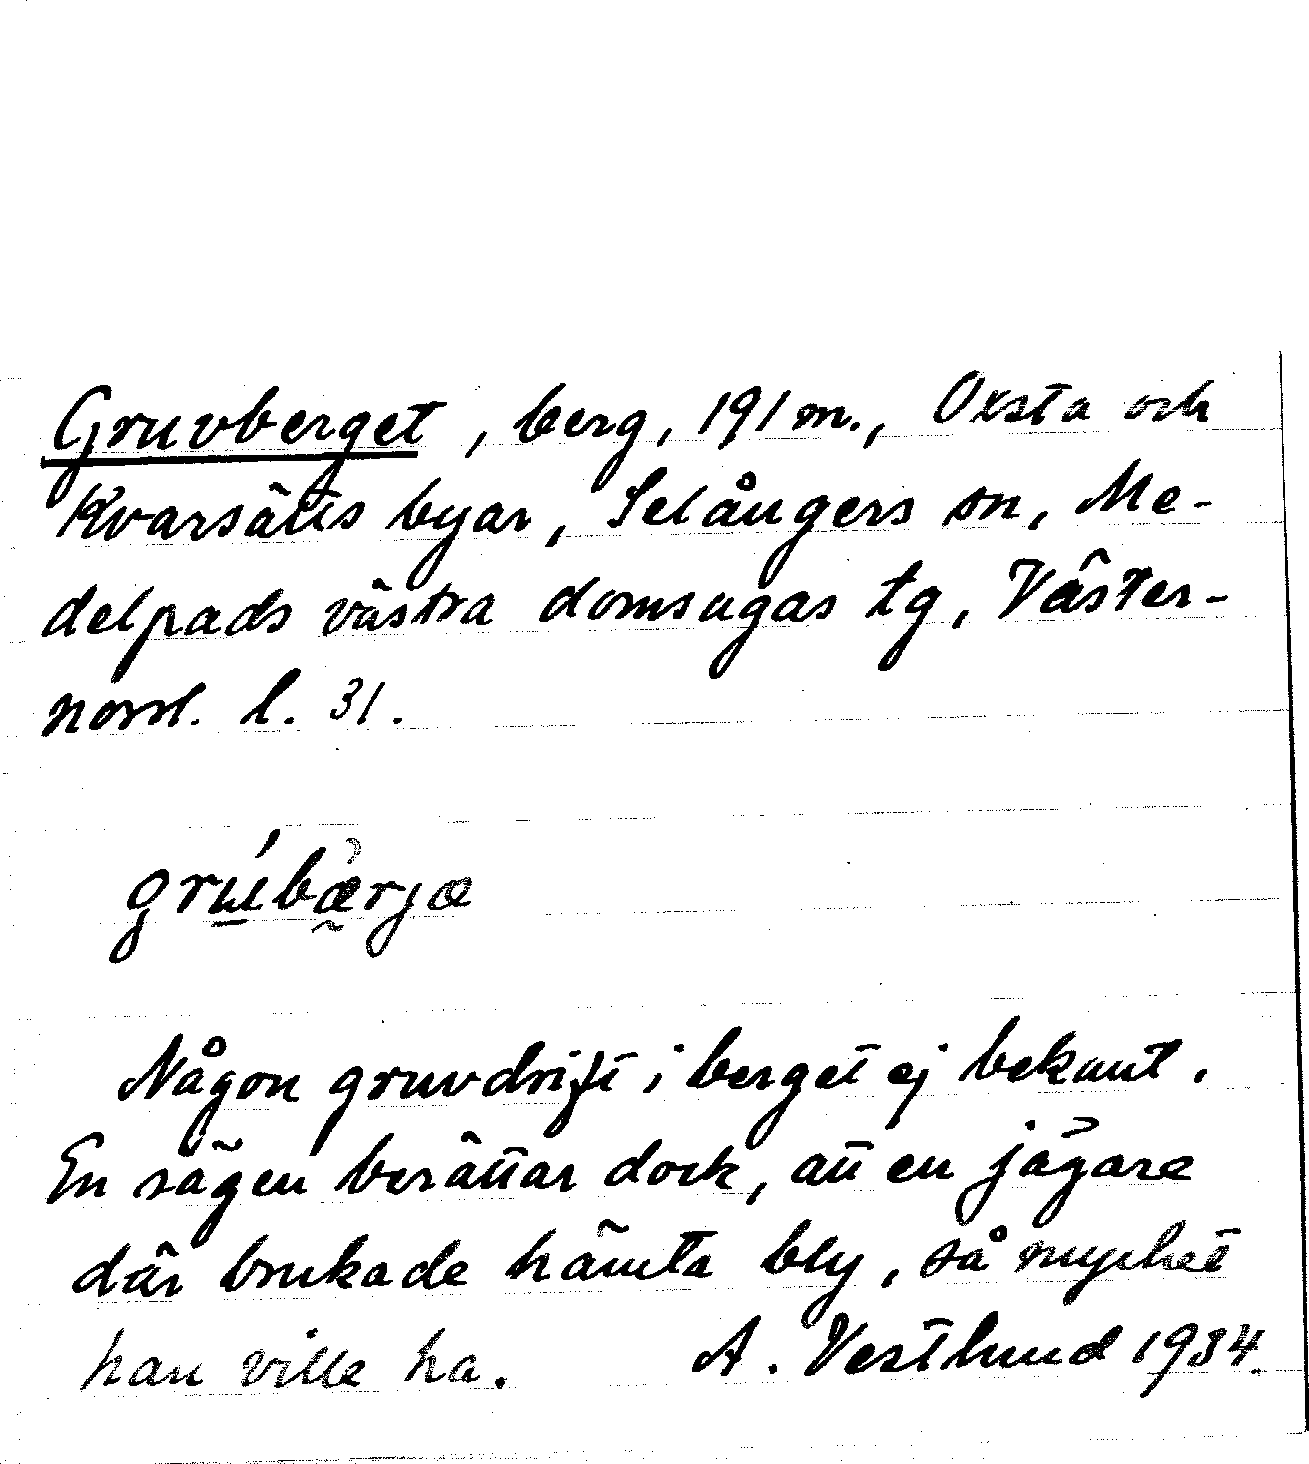 Gruvberget, berg, 191 m., Oxsta och
Kvarsätts byar, Selångers sn, Me-
delpads västra domsagas tg, Väster-
norrl. l. 31.
grúbærjæ
Någon gruvdrift i berget ej bekant.
En sägen berättar dock, att en jägare
där brukade hämta bly, så mycket
han ville ha. A. Vestlund 1934.